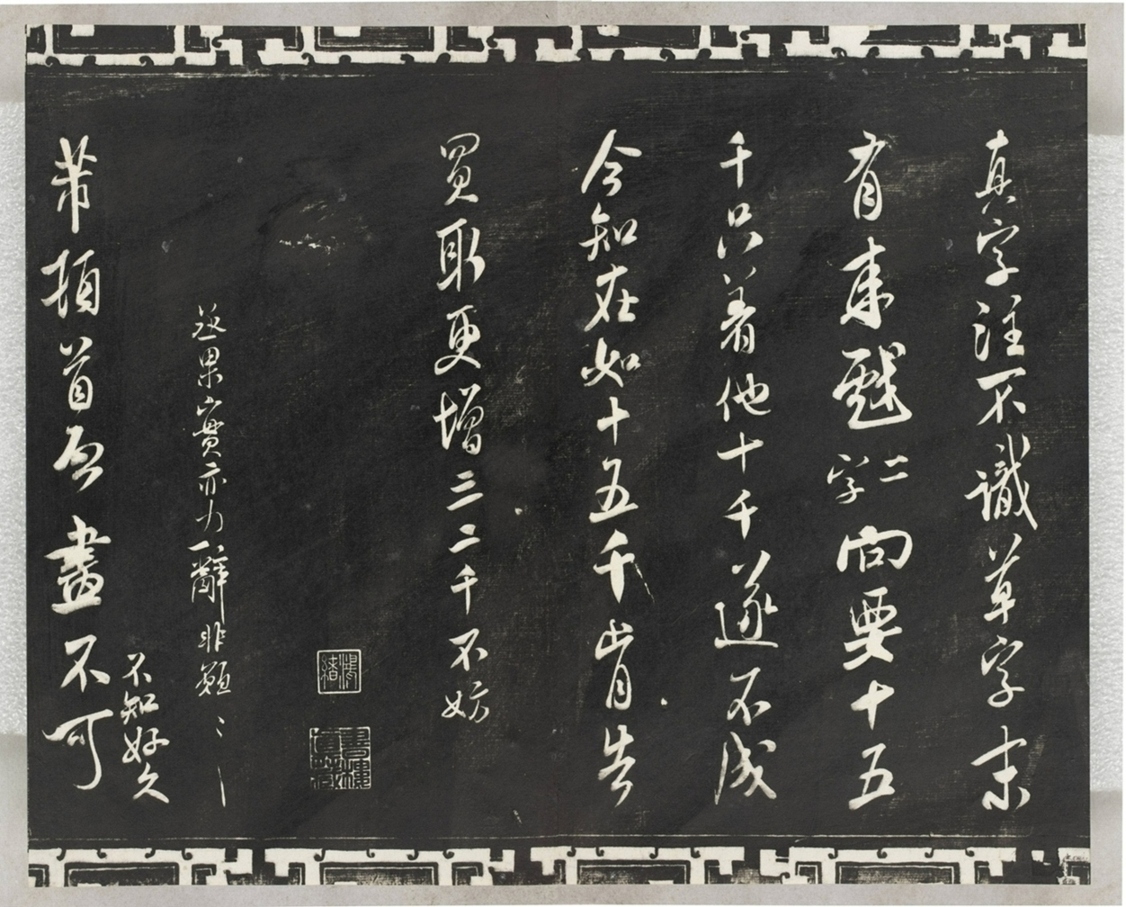 真字注不識草字末
有来戲二字向要十五
千只着他十千遂不成
今知在如十五千肯告
買取更增三二千不妨
鴻緒
果實亦力辭非
不知好久
芾頓首啓盡不可